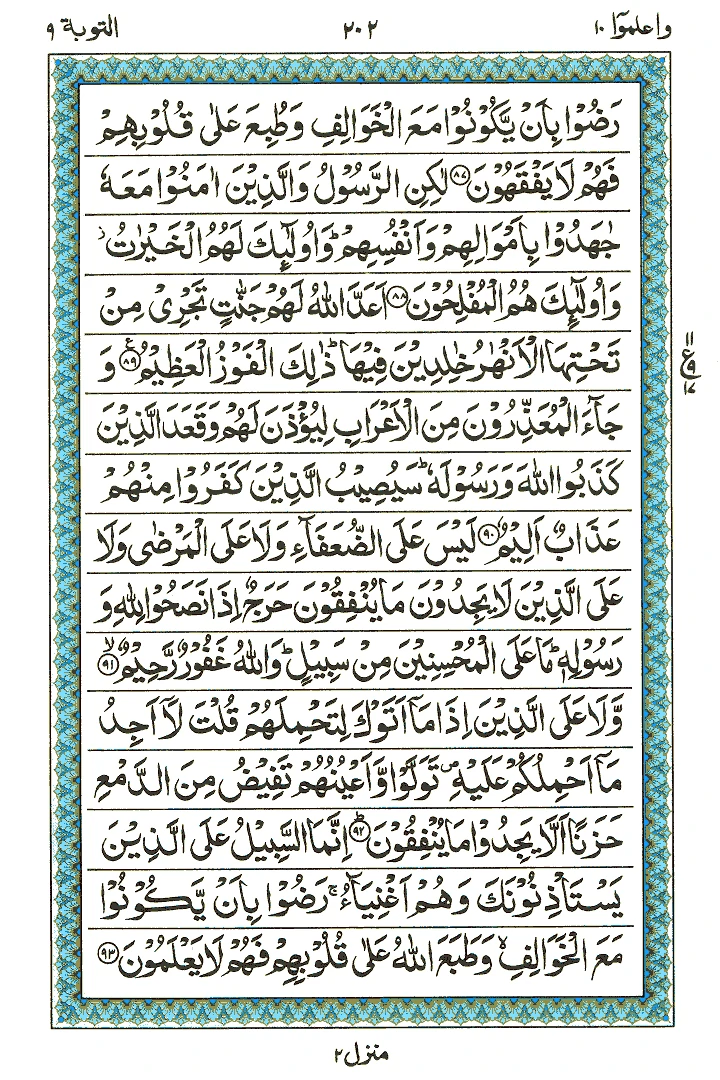 واعلموٓا ١٠ ٢٠٢ التوبة ٩
رَضُوۡا بِاَنۡ يَّكُوۡنُوۡا مَعَ الۡخَوَالِفِ وَطُبِعَ عَلٰى قُلُوۡبِهِمۡ
فَهُمۡ لَا يَفۡقَهُوۡنَ ﴿٨٧﴾ لٰكِنِ الرَّسُوۡلُ وَالَّذِيۡنَ اٰمَنُوۡا مَعَهٗ
جٰهَدُوۡا بِاَمۡوَالِهِمۡ وَاَنۡفُسِهِمۡؕ وَاُولٰٓئِكَ لَهُمُ الۡخَيۡرٰتُ‌ز
وَاُولٰٓئِكَ هُمُ الۡمُفۡلِحُوۡنَ ﴿٨٨﴾ اَعَدَّ اللّٰهُ لَهُمۡ جَنّٰتٍ تَجۡرِىۡ مِنۡ
تَحۡتِهَا الۡاَنۡهٰرُ خٰلِدِيۡنَ فِيۡهَاؕ ذٰلِكَ الۡفَوۡزُ الۡعَظِيۡمُ ﴿٨٩﴾ ع وَ
١١ ع ٩ ١٧
جَآءَ الۡمُعَذِّرُوۡنَ مِنَ الۡاَعۡرَابِ لِيُؤۡذَنَ لَهُمۡ وَقَعَدَ الَّذِيۡنَ
كَذَبُوا اللّٰهَ وَرَسُوۡلَهٗؕ سَيُصِيۡبُ الَّذِيۡنَ كَفَرُوۡا مِنۡهُمۡ
عَذَابٌ اَلِيۡمٌ ﴿٩٠﴾ لَيۡسَ عَلَى الضُّعَفَآءِ وَلَا عَلَى الۡمَرۡضٰى وَلَا
عَلَى الَّذِيۡنَ لَا يَجِدُوۡنَ مَا يُنۡفِقُوۡنَ حَرَجٌ اِذَا نَصَحُوۡا لِلّٰهِ وَ
رَسُوۡلِهٖؕ مَا عَلَى الۡمُحۡسِنِيۡنَ مِنۡ سَبِيۡلٍؕ وَاللّٰهُ غَفُوۡرٌ رَّحِيۡمٌۙ ﴿٩١﴾
وَّلَا عَلَى الَّذِيۡنَ اِذَا مَاۤ اَتَوۡكَ لِتَحۡمِلَهُمۡ قُلۡتَ لَاۤ اَجِدُ
مَاۤ اَحۡمِلُكُمۡ عَلَيۡهِ تَوَلَّوْا وَّاَعۡيُنُهُمۡ تَفِيۡضُ مِنَ الدَّمۡعِ
حَزَنًا اَلَّا يَجِدُوۡا مَا يُنۡفِقُوۡنَؕ ﴿٩٢﴾ اِنَّمَا السَّبِيۡلُ عَلَى الَّذِيۡنَ
يَسۡتَاۡذِنُوۡنَكَ وَهُمۡ اَغۡنِيَآءُۚ رَضُوۡا بِاَنۡ يَّكُوۡنُوۡا
مَعَ الۡخَوَالِفِۙ وَطَبَعَ اللّٰهُ عَلٰى قُلُوۡبِهِمۡ فَهُمۡ لَا يَعۡلَمُوۡنَ ﴿٩٣﴾
منزل ٢